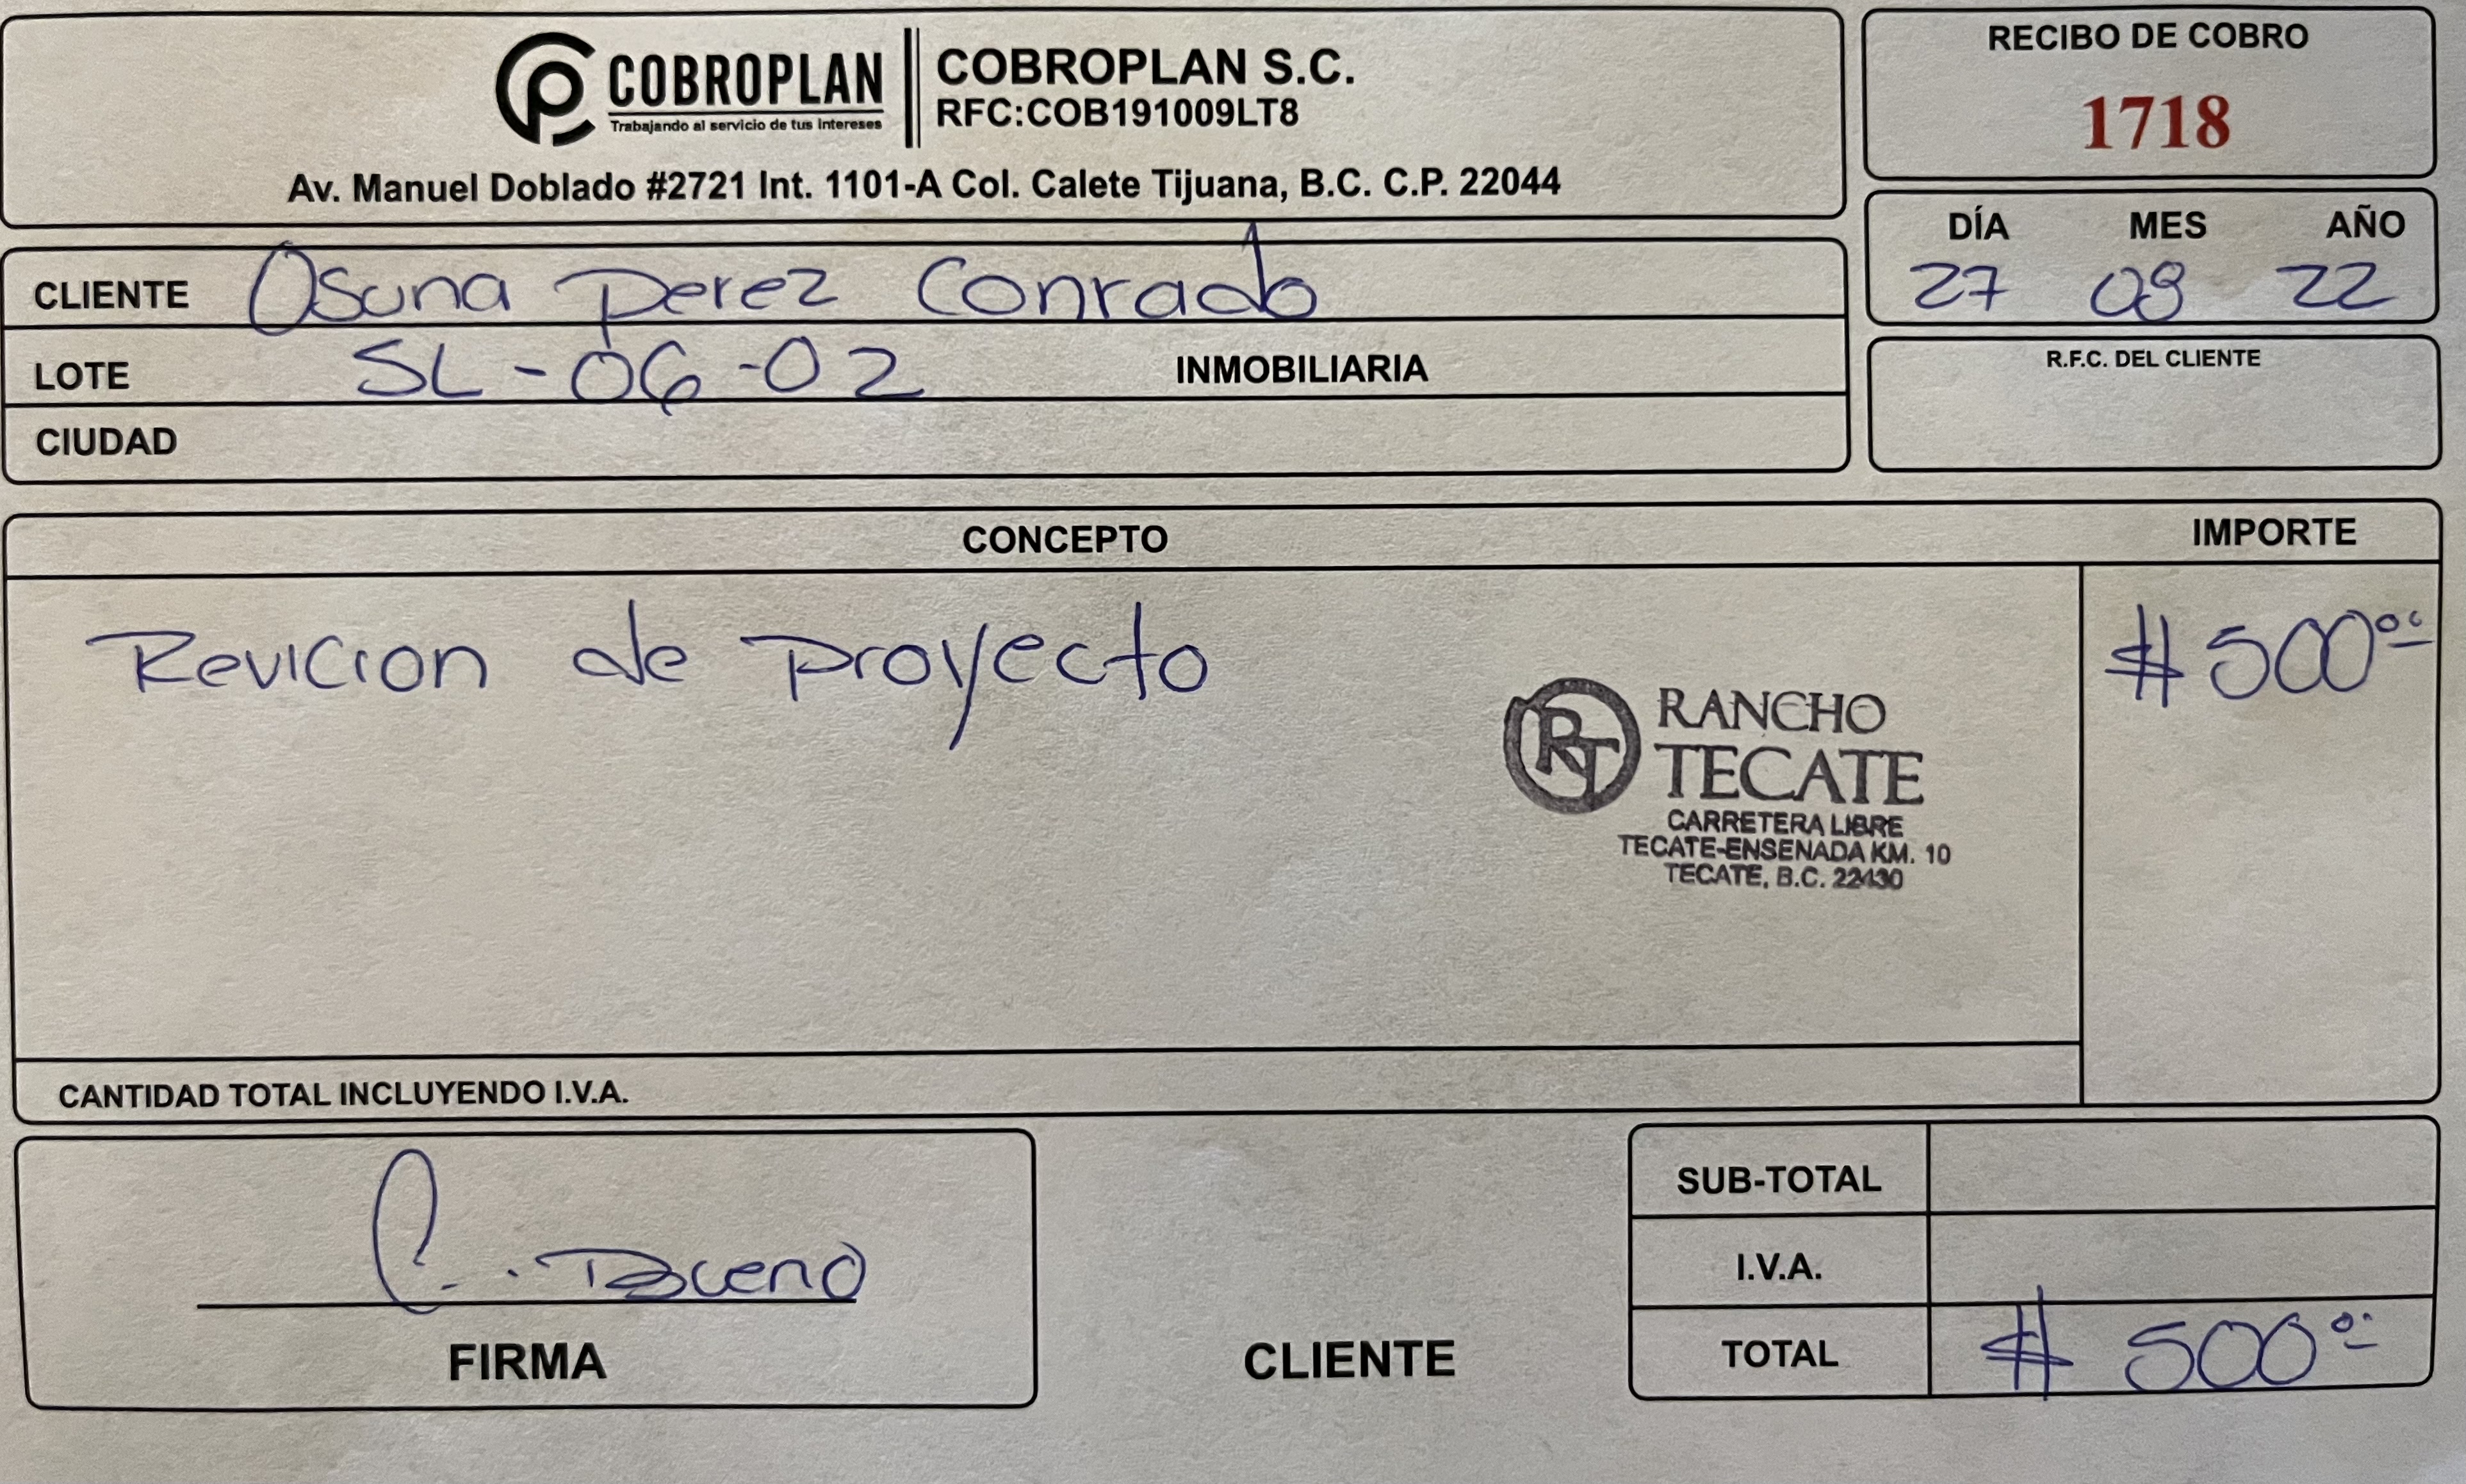 CP COBROPLAN
Trabajando al servicio de tus intereses
COBROPLAN S.C.
RFC:COB191009LT8
Av. Manuel Doblado #2721 Int. 1101-A Col. Calete Tijuana, B.C. C.P. 22044
RECIBO DE COBRO
1718
DÍA MES AÑO
27 08 22
CLIENTE Osuna Perez Conrado
LOTE SL-06-02 INMOBILIARIA
CIUDAD
R.F.C. DEL CLIENTE
CONCEPTO IMPORTE
Revicion de Proyecto $ 500.00
RT RANCHO
TECATE
CARRETERA LIBRE
TECATE-ENSENADA KM. 10
TECATE, B.C. 22430
CANTIDAD TOTAL INCLUYENDO I.V.A.
C. Bueno
FIRMA
CLIENTE
SUB-TOTAL
I.V.A.
TOTAL $ 500.00